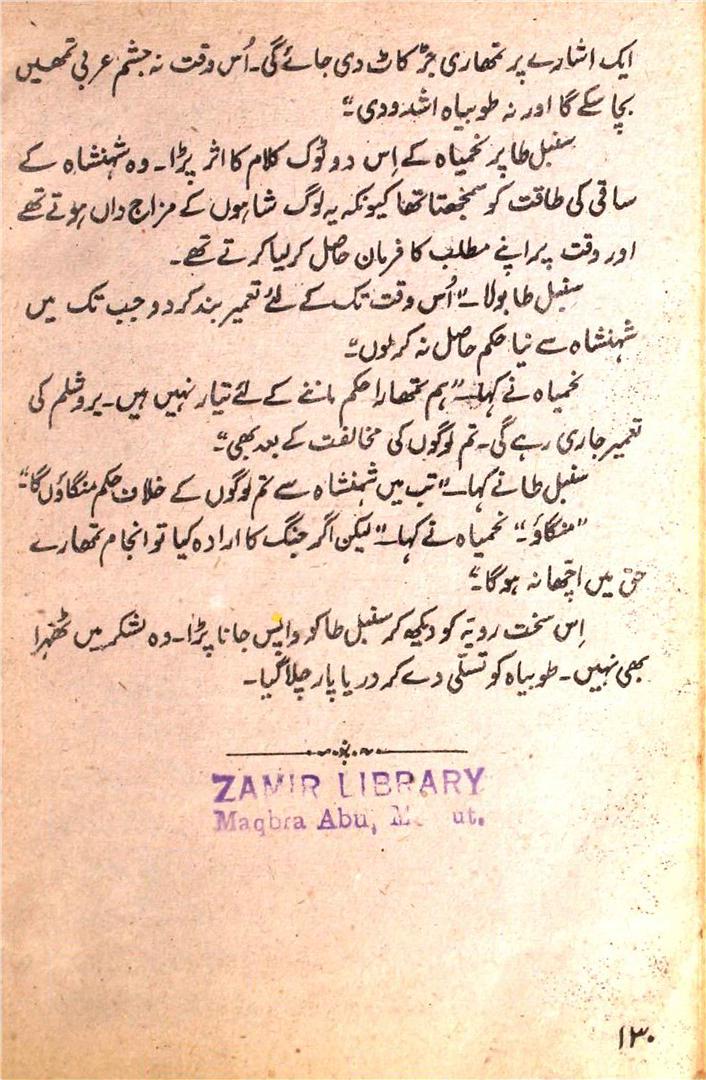 ایک اشارے پر تمھاری جڑ کاٹ دی جائے گی۔ اُس وقت نہ جشم عربی تمھیں
بچا سکے گا اور نہ طوبیاہ اشدودی۔"
سنبل طا پر نحمیاہ کے اِس دو ٹوک کلام کا اثر پڑا۔ وہ شہنشاہ کے
ساقی کی طاقت کو سمجھتا تھا کیونکہ یہ لوگ شاہوں کے مزاج داں ہوتے تھے
اور وقت پر اپنے مطلب کا فرمان حاصل کر لیا کرتے تھے۔
سنبل طا بولا۔ "اُس وقت تک کے لئے تعمیر بند کر دو جب تک میں
شہنشاہ سے نیا حکم حاصل نہ کر لوں۔"
نحمیاہ نے کہا۔ "ہم تمھارا حکم ماننے کے لئے تیار نہیں ہیں۔ یروشلم کی
تعمیر جاری رہے گی۔ تم لوگوں کی مخالفت کے بعد بھی۔"
سنبل طا نے کہا۔ "تب میں شہنشاہ سے تم لوگوں کے خلاف حکم منگاؤں گا۔"
"منگاؤ۔" نحمیاہ نے کہا۔ "لیکن اگر جنگ کا ارادہ کیا تو انجام تمھارے
حق میں اچھا نہ ہوگا۔"
اِس سخت رویّہ کو دیکھ کر سنبل طا کو واپس جانا پڑا۔ وہ لشکر میں ٹھہرا
بھی نہیں۔ طوبیاہ کو تسلّی دے کر دریا پار چلا گیا۔
ZAMIR LIBRARY
Maqbra Abu,
۱۳۰